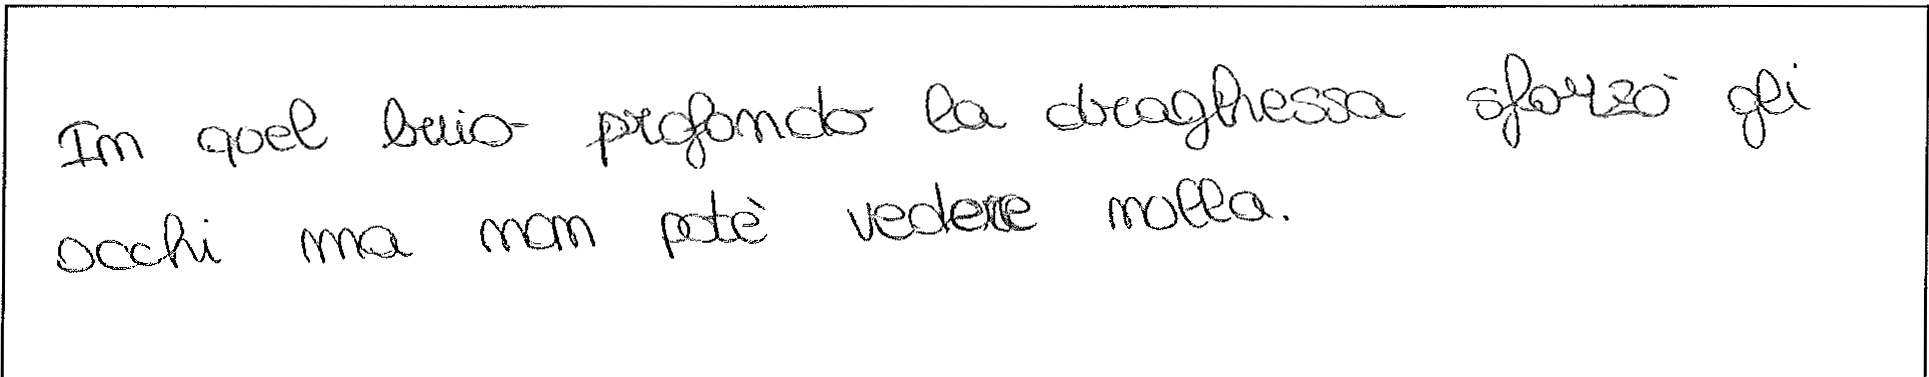 In quel buio profondo la draghessa sforzò gli
occhi ma non potè vedere nolla.